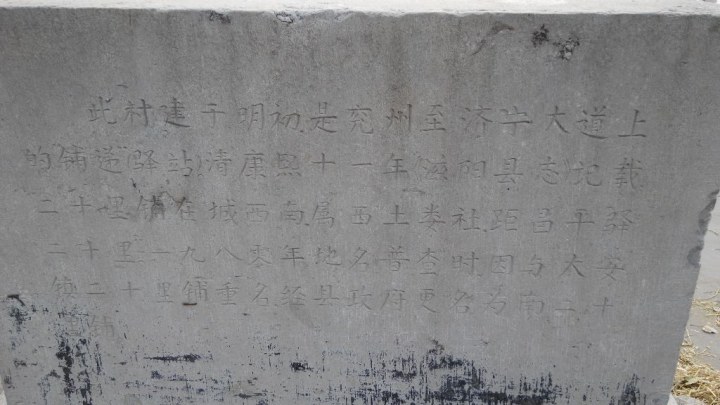 此村建于明初是兖州至济宁大道上
的铺递驿站清康熙十一年滋阳县志记载
二十里铺在城西南属西土娄社距昌平驿
二十里一九八零年地名普查时因与大安
镇二十里铺重名经县政府更名为南二十
里铺